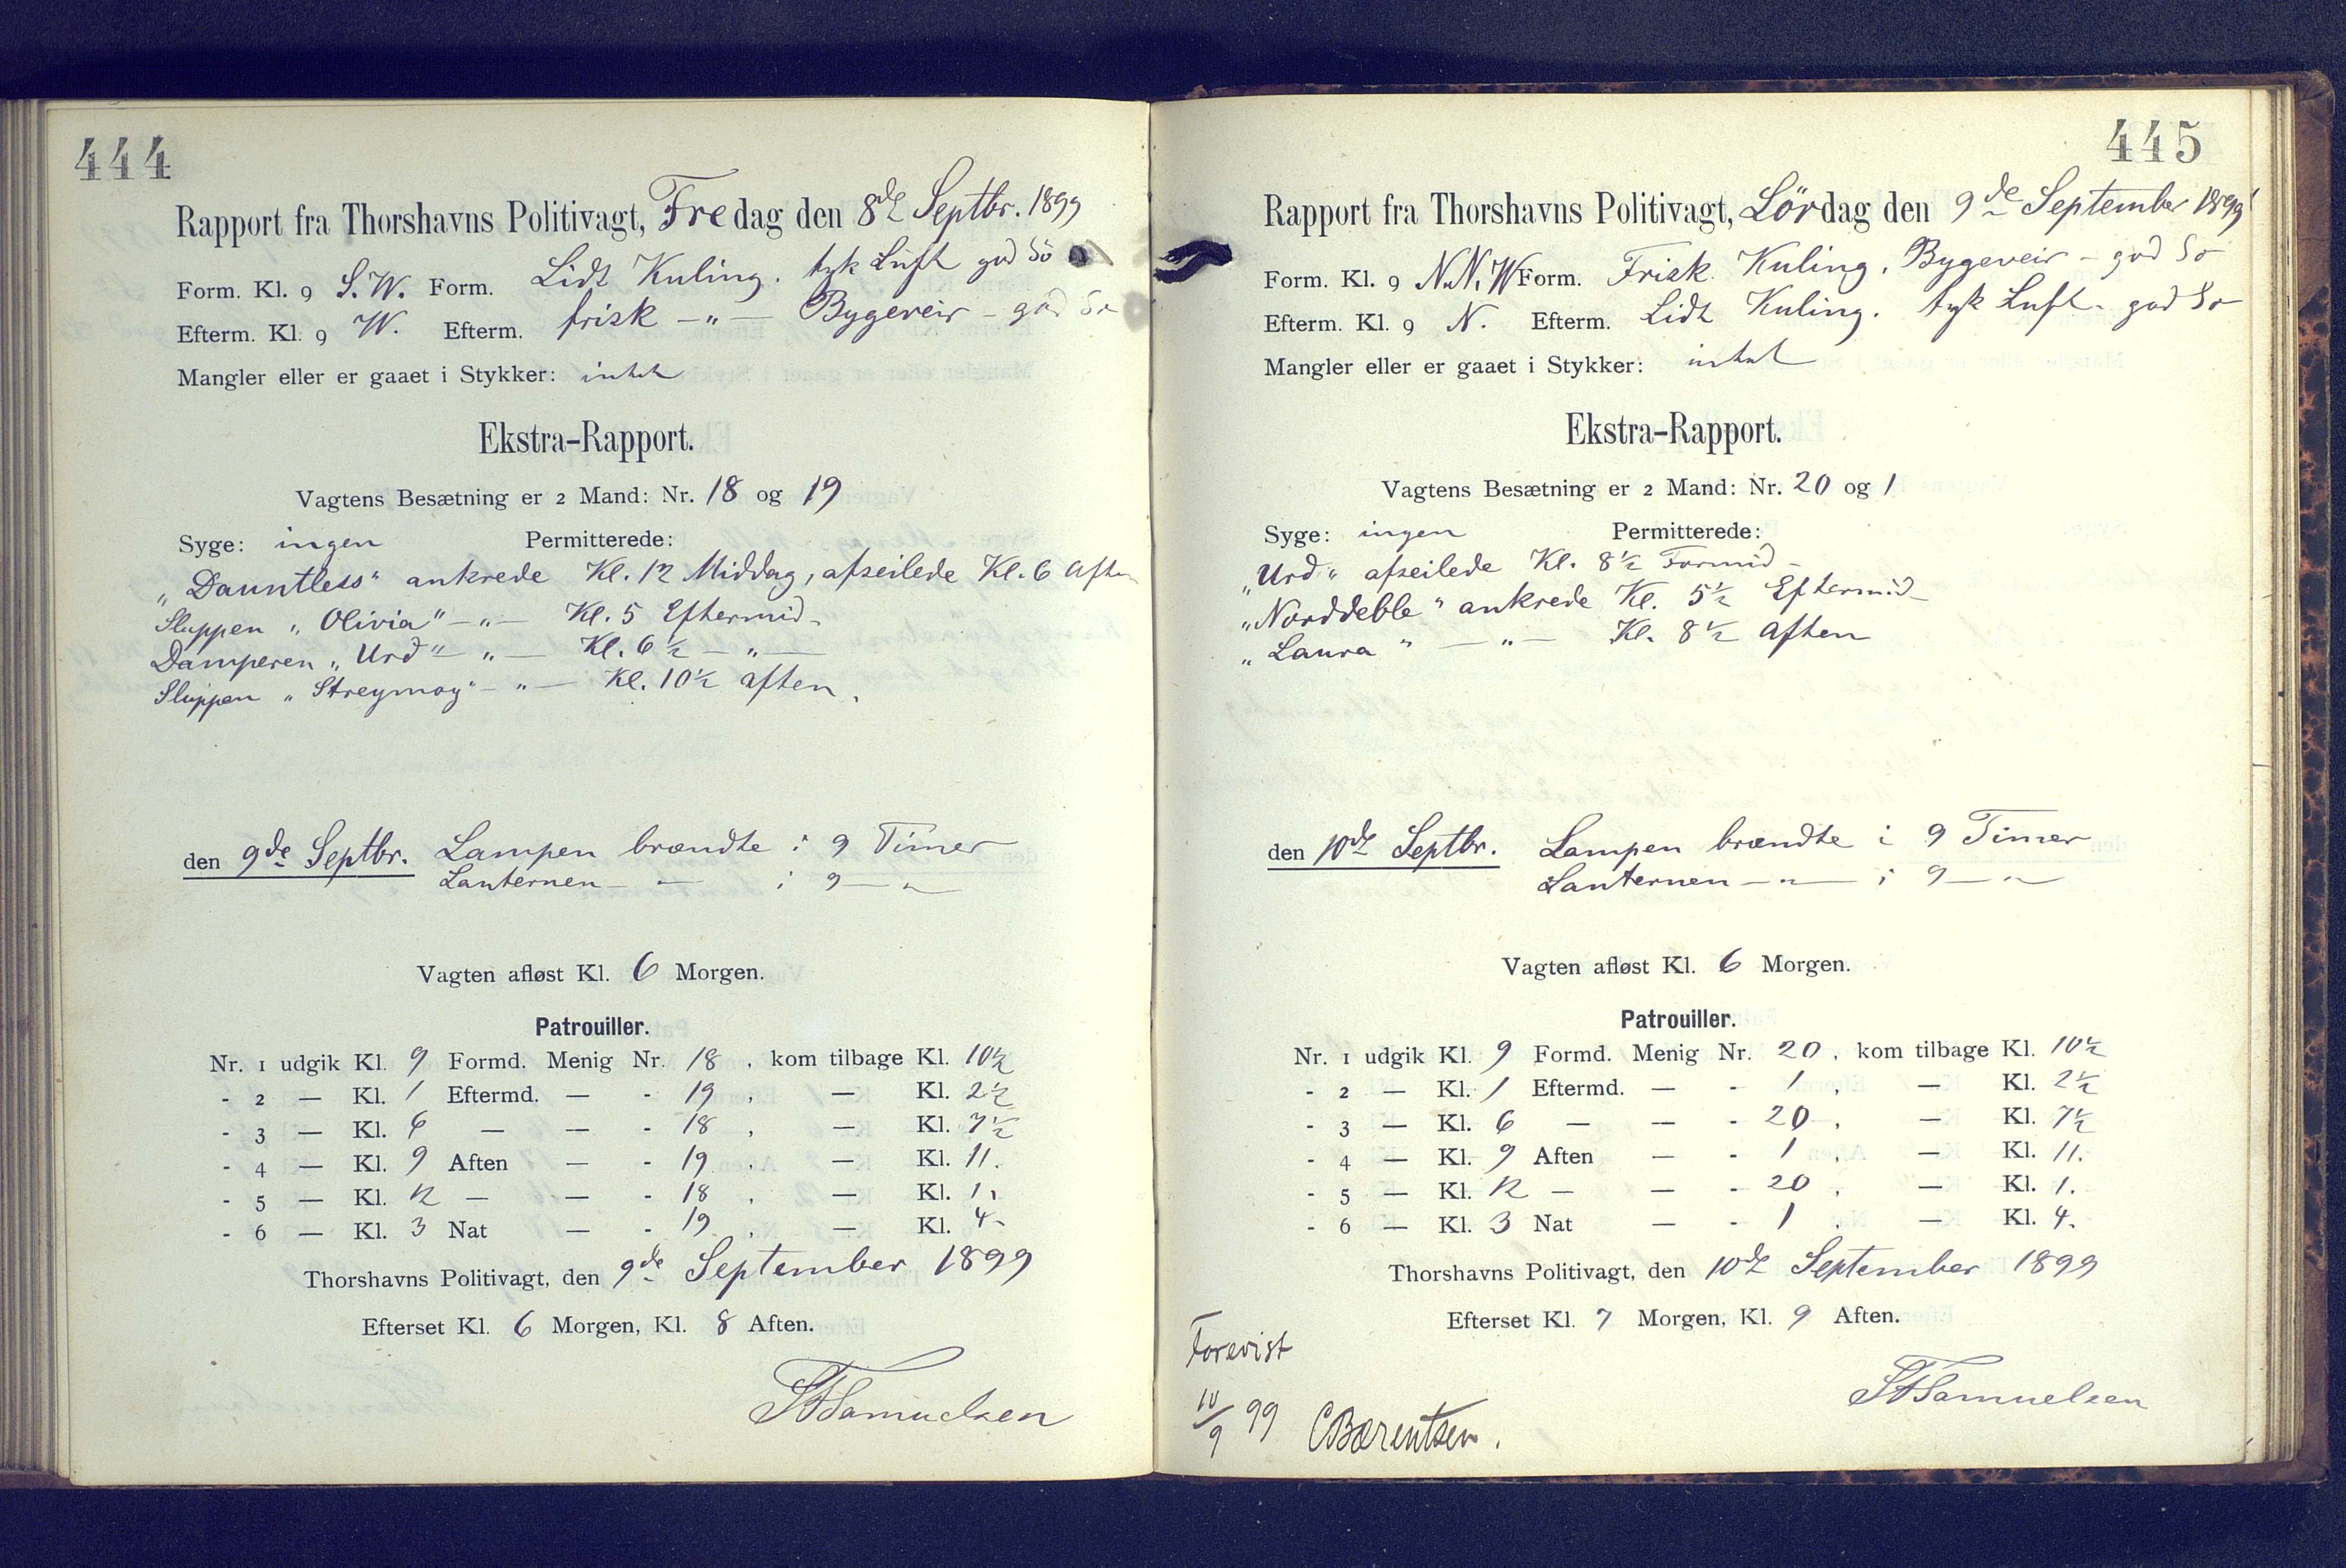 444
Rapport fra Thorshavns Politivagt, Fredag den 8de Septbr. 1899
Form. Kl. 9 S.W. Form. Lidt Kuling. tyk Luft god Sö
Efterm. Kl. 9 W. Efterm. frisk — " — Bygeveir - god So
Mangler eller er gaaet i Stykker: intet
Ekstra-Rapport.
Vagtens Besætning er 2 Mand: Nr. 18 og 19
Syge: ingen Permitterede:
„Dauntless" ankrede Kl. 12 Middag, afseilede Kl. 6 Aften
Sluppen „Olivia" — " — Kl. 5 Eftermid.
Damperen „Urd" — " — Kl. 6½ — " —
Sluppen „Streymoy" — " — Kl. 10½ aften.
den 9de Septbr. Lampen brændte i 9 Timer
Lanternen — " — i 9 — " —
Vagten afløst Kl. 6 Morgen.
Patrouiller.
Nr. 1 udgik Kl. 9 Formd. Menig Nr. 18, kom tilbage Kl. 10½
- 2 — Kl. 1 Eftermd. — - 19, — Kl. 2½
- 3 — Kl. 6 — — - 18, — Kl. 7½
- 4 — Kl. 9 Aften — - 19, — Kl. 11.
- 5 — Kl. 12 — — - 18, — Kl. 1.
- 6 — Kl. 3 Nat — - 19, — Kl. 4.
Thorshavns Politivagt, den 9de September 1899
Efterset Kl. 6 Morgen, Kl. 8 Aften.
Samuelsen
445
Rapport fra Thorshavns Politivagt, Lördag den 9de September 1899
Form. Kl. 9 N.N.W Form. Frisk Kuling. Bygeveir - god So
Efterm. Kl. 9 N. Efterm. Lidt Kuling. tyk Luft - god So
Mangler eller er gaaet i Stykker: intet
Ekstra-Rapport.
Vagtens Besætning er 2 Mand: Nr. 20 og 1
Syge: ingen Permitterede:
„Urd" afseilede Kl. 8½ Formid -
„Norddeble" ankrede Kl. 5½ Eftermid -
„Laura" — " — Kl. 8½ Aften
den 10de Septbr. Lampen brændte i 9 Timer
Lanternen — " — i 9 — " —
Vagten afløst Kl. 6 Morgen.
Patrouiller.
Nr. 1 udgik Kl. 9 Formd. Menig Nr. 20, kom tilbage Kl. 10½
- 2 — Kl. 1 Eftermd. — - 1, — Kl. 2½
- 3 — Kl. 6 — — - 20, — Kl. 7½
- 4 — Kl. 9 Aften — - 1, — Kl. 11.
- 5 — Kl. 12 — — - 20, — Kl. 1.
- 6 — Kl. 3 Nat — - 1, — Kl. 4.
Thorshavns Politivagt, den 10de September 1899
Efterset Kl. 7 Morgen, Kl. 9 Aften.
Samuelsen
Forevist
10/9 99 CBærentsen.